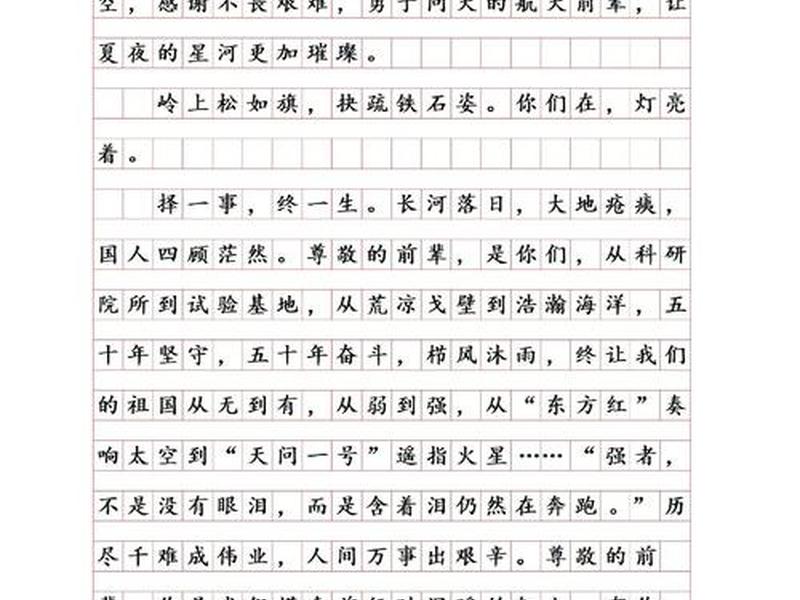 空，感谢不畏艰难，勇于问天的航天前辈，让
夏夜的星河更加璀璨。
岭上松如旗，抉疏铁石姿。你们在，灯亮
着。
择一事，终一生。长河落日，大地疮痍，
国人四顾茫然。尊敬的前辈，是你们，从科研
院所到试验基地，从荒凉戈壁到浩瀚海洋，五
十年坚守，五十年奋斗，栉风沐雨，终让我们
的祖国从无到有，从弱到强，从“东方红”奏
响太空到“天问一号”遥指火星……“强者，
不是没有眼泪，而是含着泪仍然在奔跑。”历
尽千难成伟业，人间万事出艰辛。尊敬的前